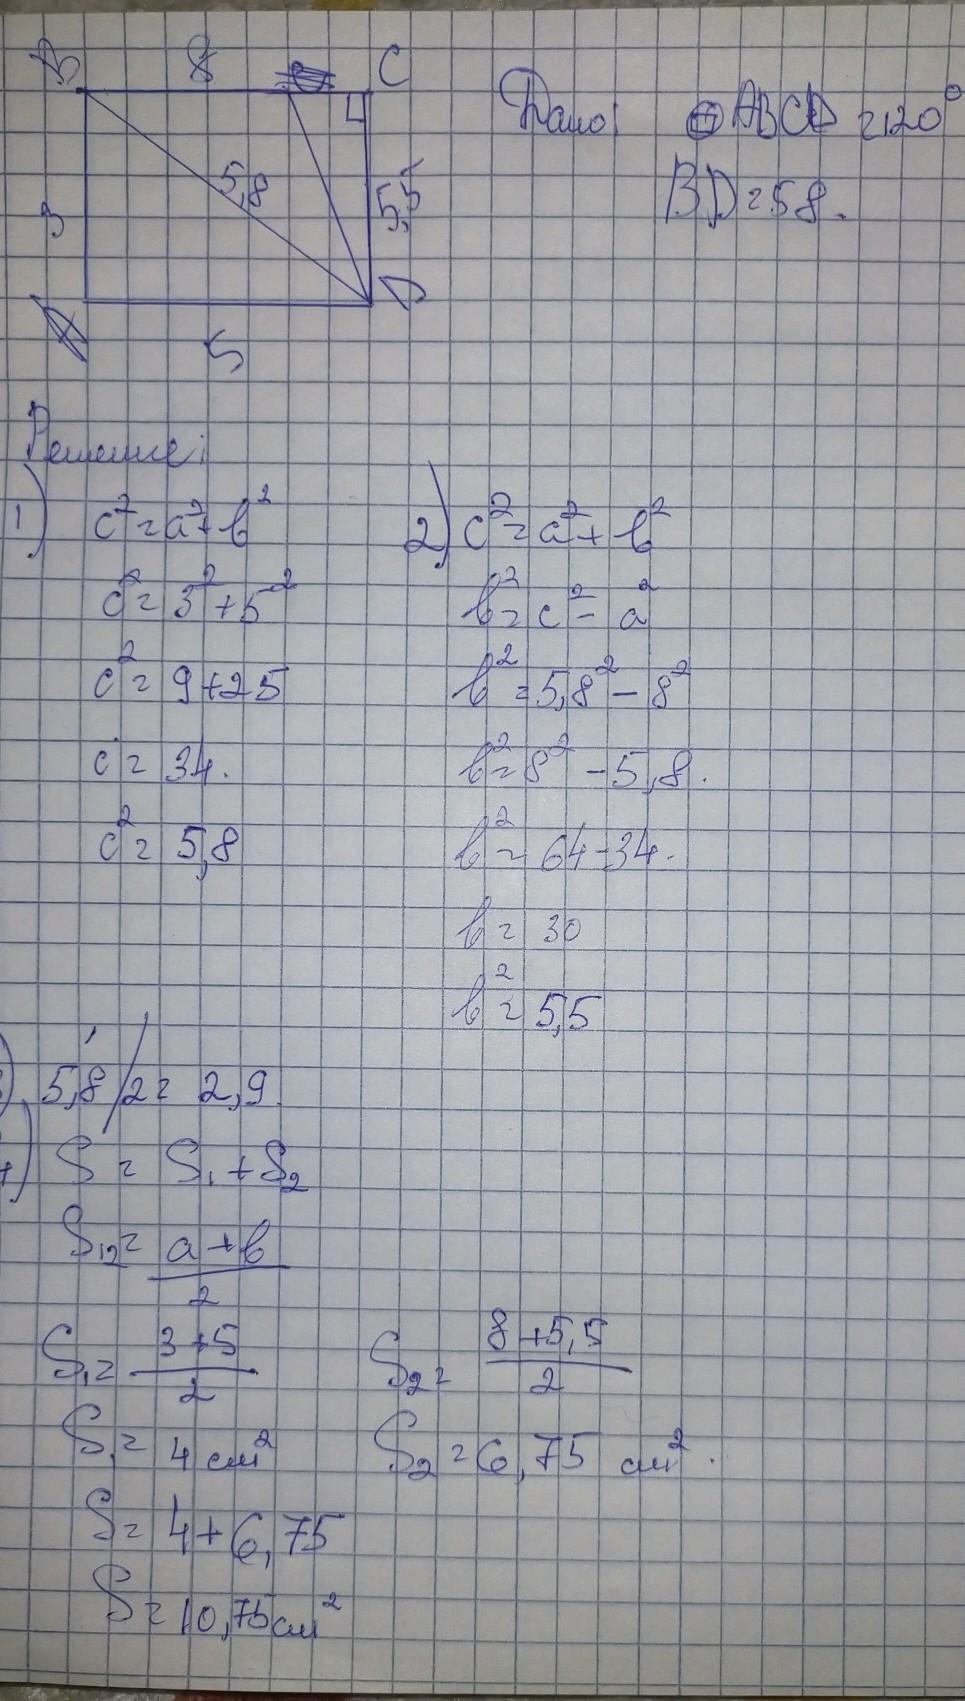 B 8 C
4
5,8
3
5,5
D
A
5
Дано: ABCD = 120°
BD = 58.
Решение:
1) c² = a² + b²
c² = 3² + 5²
c² = 9 + 25
c = 34.
c² = 5,8
2) c² = a² + b²
b² = c² - a²
b² = 5,8² - 8²
b² = 8² - 5,8.
b² = 64 - 34.
b = 30
b² = 5,5
5,8 / 2 = 2,9
S = S₁ + S₂
S₁₂ = a + b
2
S₁ = 3 + 5
2
S₁ = 4 см²
S₂ = 8 + 5,5
2
S₂ = 6,75 см².
S = 4 + 6,75
S = 10,75 см²